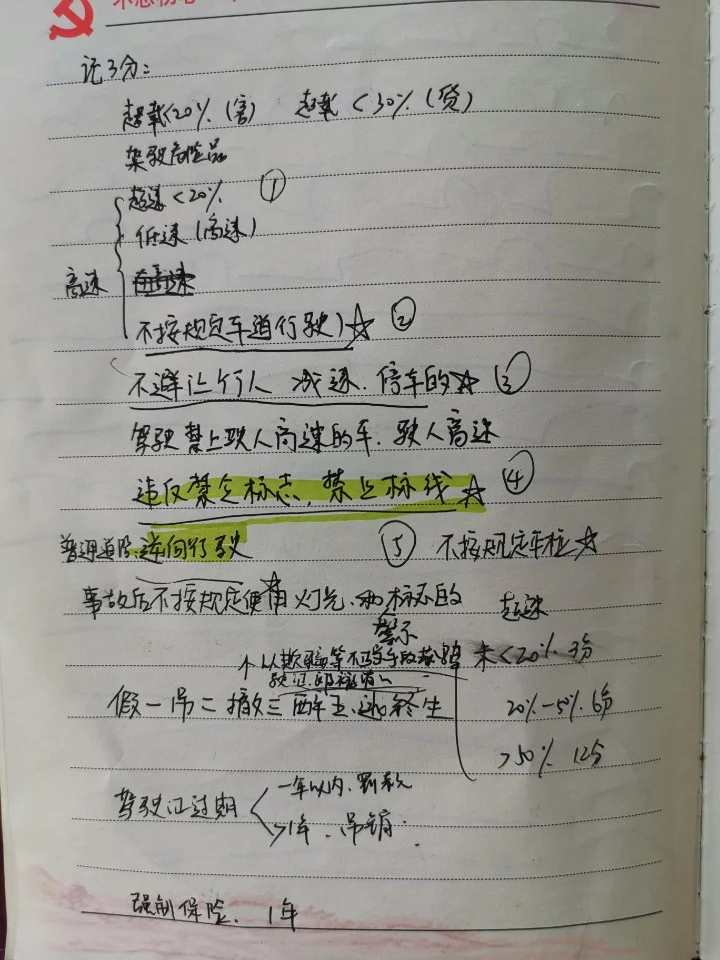 记3分:
超载<20%(客) 超载<30%(货)
驾驶危险品
超速<20% ①
低速(高速)
高速
不按规定车道行驶)☆ ②
不避让行人 减速、停车的☆ ③
驾驶禁止驶入高速的车、驶入高速
违反禁令标志,禁止标线☆ ④
普通道路:逆向行驶 ⑤ 不按规定车柱☆
事故后不按规定使用灯光、和标志的☆ 超速
警示
个以欺骗等不当手段获 未<20% 3分
驶证
假一吊二撤三醉五逃终生 20%-50% 6分
>50% 12分
驾驶证过期 一年以内、罚款
>1年、吊销.
强制保险、1年